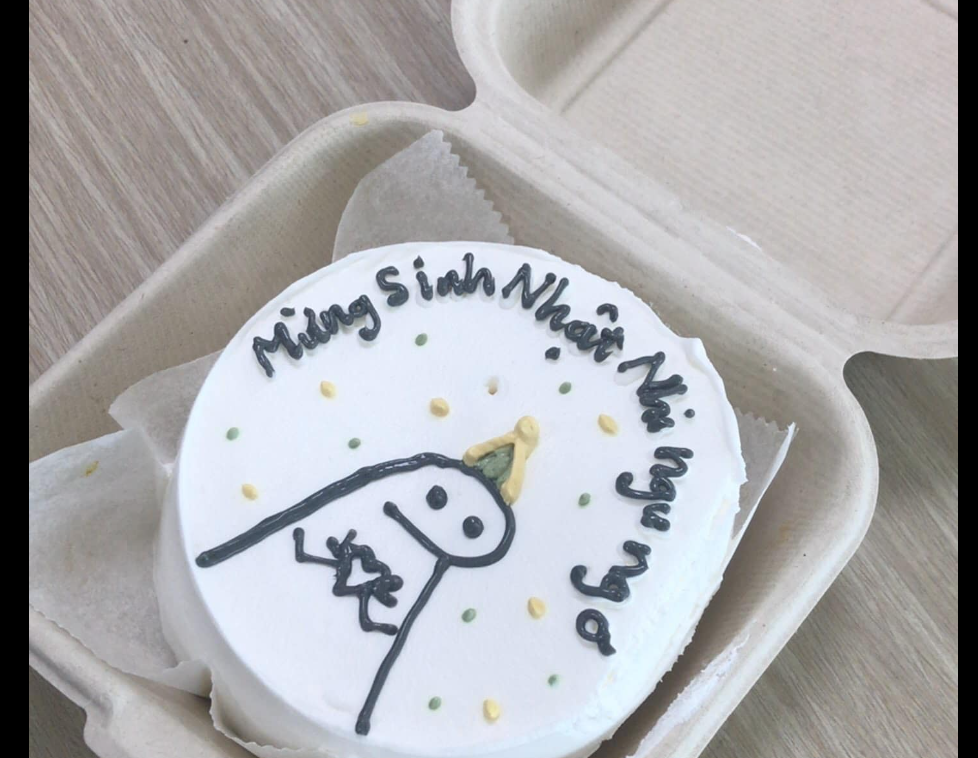 Mừng Sinh Nhật Nhi ngu ngơ